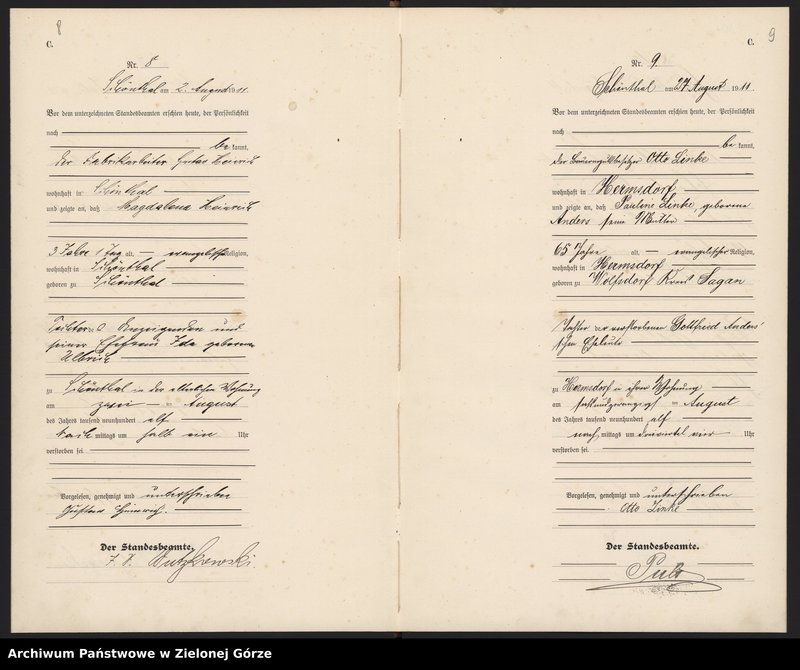 8
C.
Nr. 8
Schönthal am 2. August 1911.
Vor dem unterzeichneten Standesbeamten erschien heute, der Persönlichkeit
nach
be kannt,
der Fabrikarbeiter Gustav Heinrich
wohnhaft in Schönthal
und zeigte an, daß Magdalena Heinrich
3 Jahre 1 Tag alt, evangelischer Religion,
wohnhaft in Schönthal
geboren zu Schönthal
Tochter des Anzeigenden und
seiner Ehefrau Ida geborene
Ulbrich
zu Schönthal in der elterlichen Wohnung
am zwei ten August
des Jahres tausend neunhundert elf
nach mittags um halb ein Uhr
verstorben sei.
Vorgelesen, genehmigt und unterschrieben
Gustav Heinrich.
Der Standesbeamte.
9
C.
Nr. 9.
Schönthal am 27. August 1911.
Vor dem unterzeichneten Standesbeamten erschien heute, der Persönlichkeit
nach
be kannt,
der Bauergutsbesitzer Otto Linke
wohnhaft in Hermsdorf
und zeigte an, daß Pauline Linke, geborene
Anders seine Mutter
65 Jahre alt, evangelischer Religion,
wohnhaft in Hermsdorf
geboren zu Wolfsdorf Kreis Sagan
Tochter der verstorbenen Gottfried Anders'
schen Eheleute
zu Hermsdorf in ihrer Wohnung
am sechsundzwanzigsten August
des Jahres tausend neunhundert elf
nach mittags um dreiviertel vier Uhr
verstorben sei.
Vorgelesen, genehmigt und unterschrieben
Otto Linke
Der Standesbeamte.
Archiwum Państwowe w Zielonej Górze